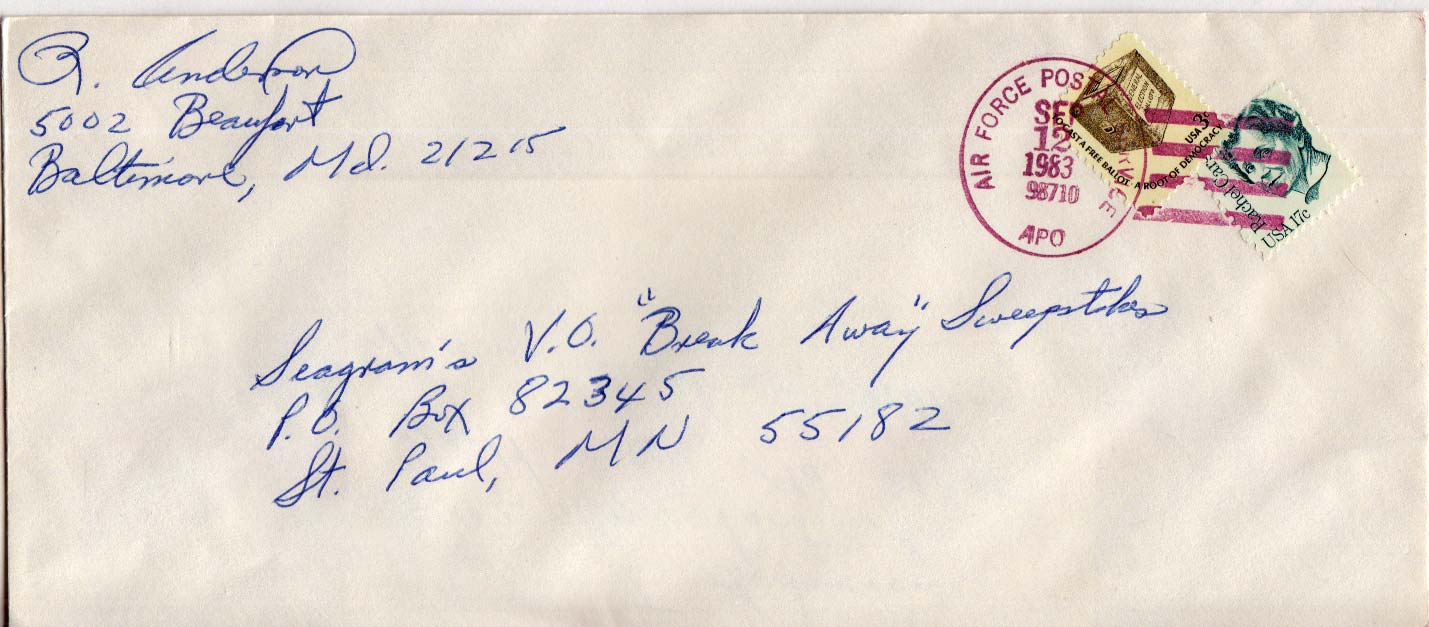 R. Anderson
5002 Beaufort
Baltimore, Md. 21215
AIR FORCE POSTAL SERVICE
SEP
12
1983
98710
APO
GENERAL
ELECTION
TO CAST A FREE BALLOT · A ROOT OF DEMOCRACY
USA 3c
Rachel Cars
USA 17c
Seagram's V.O. "Break Away" Sweepstakes
P.O. Box 82345
St. Paul, MN 55182